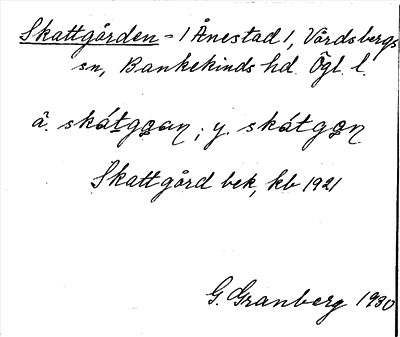 Skattgården = 1 Ånestad 1, Vårdsbergs
sn, Bankekinds hd. Ögl. l.
ä. skátgɷan; y. skátgɷn
Skattgård bek, kb 1921
G. Granberg 1930